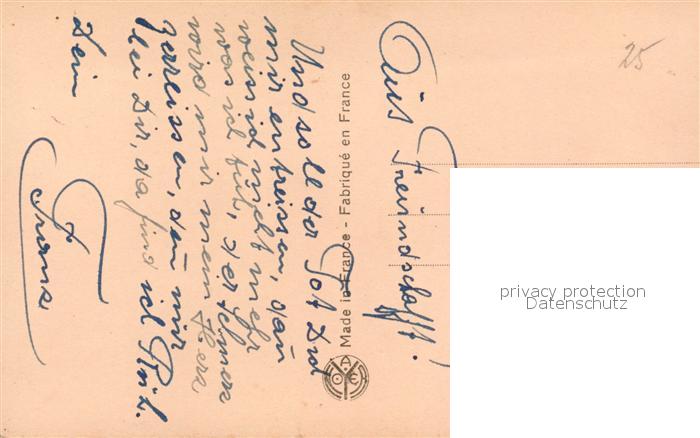 Aus Freundschaft!
Und soll der Tot Dich
mir entreissen, dan
weis ich nicht mehr
was ich tüh, der Schmerz
wird mir mein Herz
zerreissen, dan nur
bei Dir, da find ich
Dein
Franz
Made in France - Fabriqué en France
25
privacy protection
Datenschutz